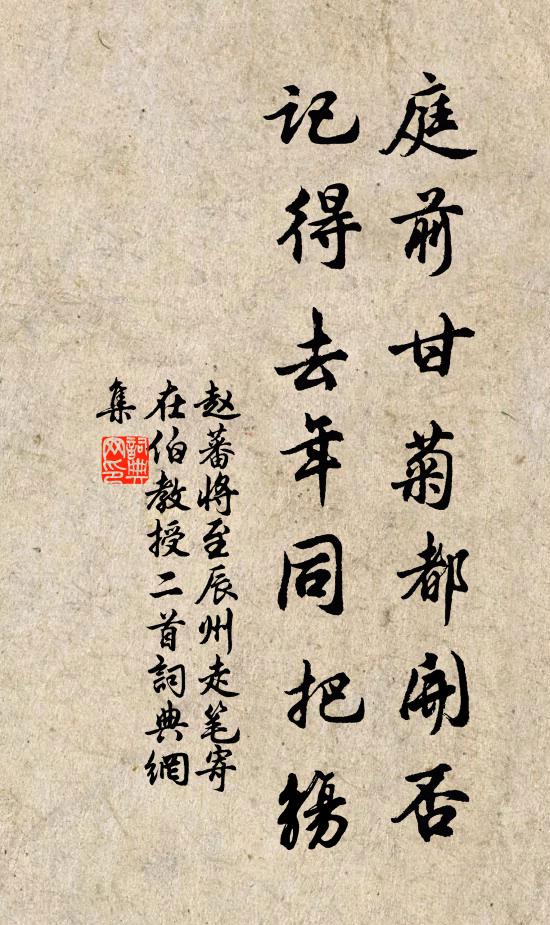 庭前甘菊都開否
記得去年同把觴
赵蕃將至辰州走笔寄
在伯教授二首詞典網
集
詞典
网印